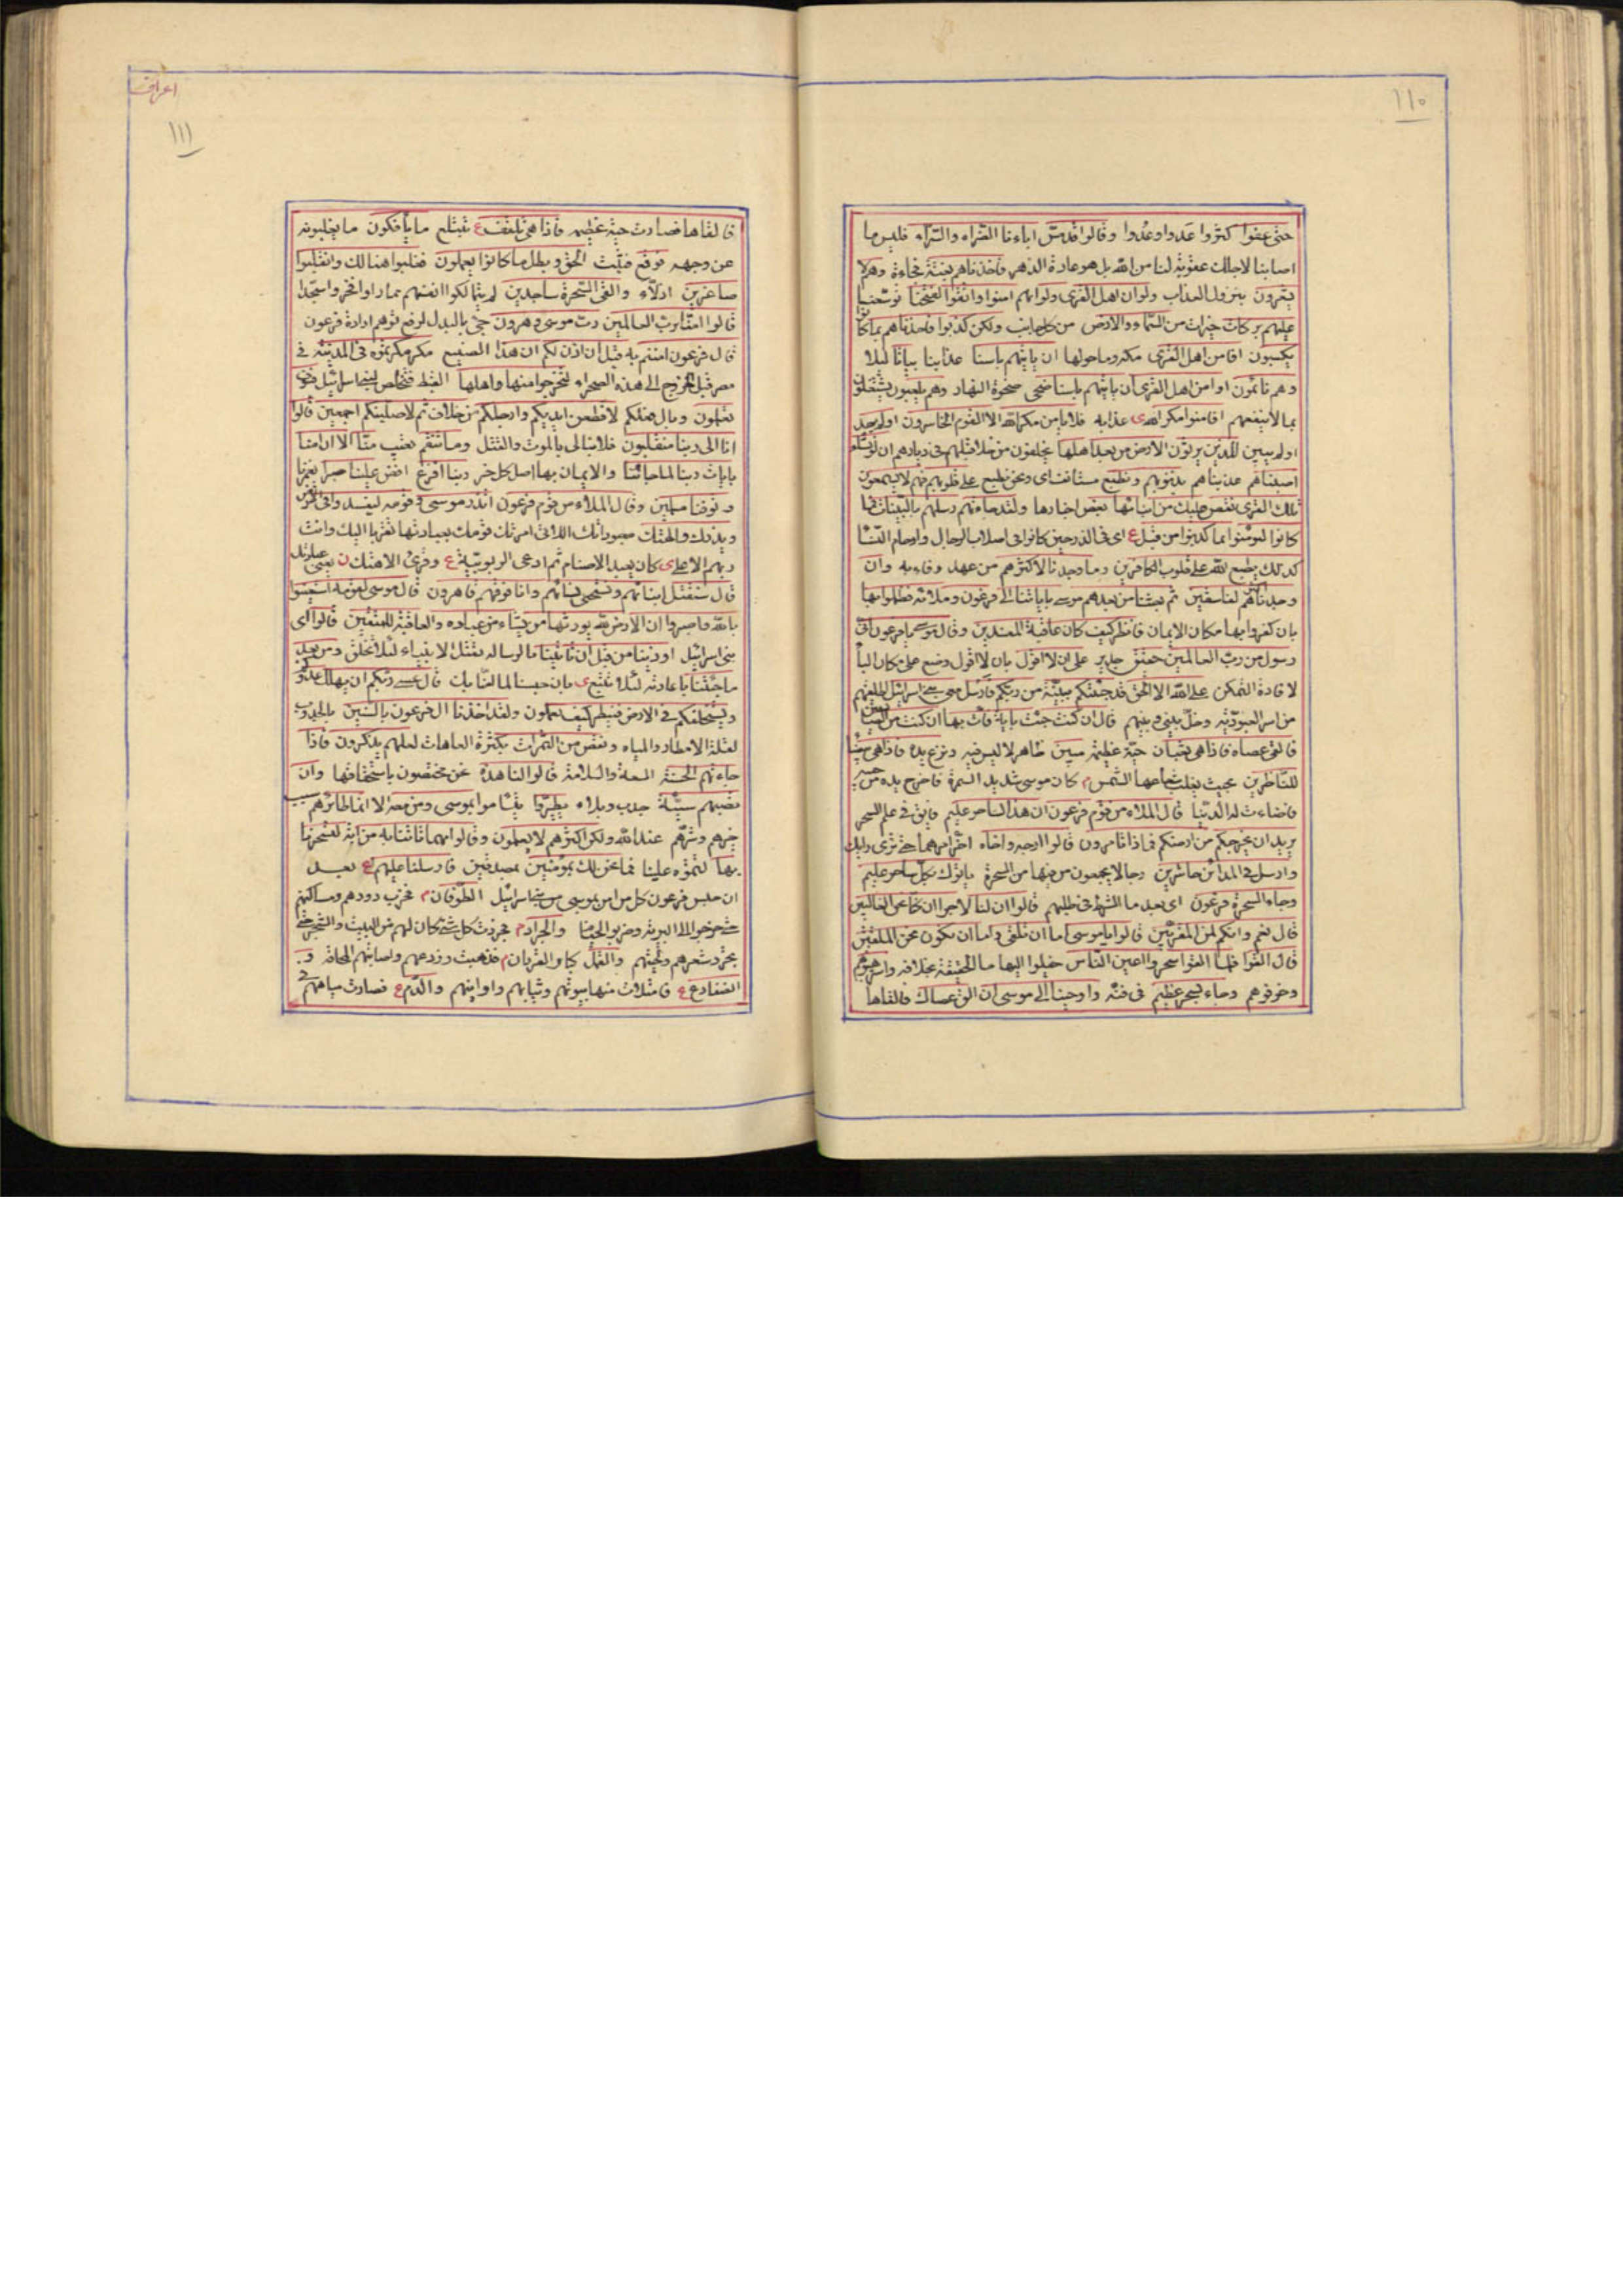 ١١٠
حتى عفوا كثروا عَددا وعُددا وقالوا قد مسّ اباءنا الضراء والسرّاء فليس ما
اصابنا لاجلك عقوبة لنا من الله بل هو عادة الدهر فاخذناهم بغتة فجاءة وهم لا
يشعرون بنزول العذاب ولو ان اهل القرى ولو انهم امنوا واتقوا لفتحنا لوسّعنا
عليهم بركات خيرات من السماء والارض من كل جانب ولكن كذبوا فاخذناهم بما كانوا
يكسبون افامن اهل القرى مكة وما حولها ان ياتيهم باسنا عذابنا بياتا ليلا
وهم نائمون اوامن اهل القرى ان ياتيهم باسنا ضحى ضحوة النهار وهم يلعبون يشتغلون
بما لا ينفعهم افامنوا مكر الله ى عذابه فلا يامن مكر الله الا القوم الخاسرون اولم يهد
اولم يبين للذين يرثون الارض من بعد اهلها يخلفون من خلا قبلهم فى ديارهم ان لو نشاء
اصبناهم عذبناهم بذنوبهم ونطبع مستانف اى ونحن نطبع على قلوبهم فهم لا يسمعون
تلك القرى نقص عليك من انبائها بعض اخبارها ولقد جاءتهم رسلهم بالبينات فما
كانوا ليومنوا بما كذبوا من قبل ع اى فى الذر حين كانوا فى اصلاب الرجال وارحام النساء
كذلك يطبع الله على قلوب الكافرين وما وجدنا لاكثرهم من عهد وفاء به وان
وجدنا اكثرهم لفاسقين ثم بعثنا من بعدهم موسى باياتنا الى فرعون وملائه فظلموا بها
بان كفروا بها مكان الايمان فانظر كيف كان عاقبة المفسدين وقال موسى يا فرعون انى
رسول من رب العالمين حقيق جدير على ان لا اقول بان لا اقول وضع على مكان الباء
لافادة التمكن على الله الا الحق قد جئتكم ببينة من ربكم فارسل معى بنى اسرائيل
من اسر العبودية وخلّ بينى وبينهم قال ان كنت جئت باية فات بها ان كنت من الصادقين
فالقى عصاه فاذا هى ثعبان حية عظيمة مبين ظاهر لا لبس فيه ونزع يده فاذا هى بيضاء
للناظرين بحيث يغلب شعاعها الشمس م كان موسى شديد السمرة فاخرج يده من جيبه
فاضاءت له الدنيا قال الملاء من قوم فرعون ان هذا لساحر عليم فايق فى علم السحر
يريد ان يخرجكم من ارضكم فماذا تامرون قالوا ارجه واخاه اخّر امرهما حتى ترى رايك
وارسل فى المدائن حاشرين رجالا يجمعون من فيها من السحرة ياتوك بكل ساحر عليم
وجاء السحرة فرعون اى بعد ما الشرط فى طلبهم قالوا ان لنا لاجرا ان كنا نحن الغالبين
قال نعم وانكم لمن المقربين قالوا يا موسى اما ان تلقى واما ان نكون نحن الملقين
قال القوا فلما القوا سحروا اعين الناس خيلوا اليها ما الحقيقة بخلافه واسترهبوهم
وخوفوهم وجاء بسحر عظيم فى فنه واوحينا الى موسى ان الق عصاك فالقاها
اعراف
١١١
فالقاها فصارت حية عظيمة فاذا هى تلقف ع تبتلع ما يافكون ما يقلبونه
عن وجهه فوقع فثبت الحق وبطل ما كانوا يعملون فغلبوا هنالك وانقلبوا
صاغرين اذلاء والقى السحرة ساجدين لم يتمالكوا انفسهم مما راوا فخروا سجدا
قالوا امنا برب العالمين رب موسى وهرون جئ بالبدل لرفع توهم ارادة فرعون
قال فرعون امنتم به قبل ان اذن لكم ان هذا الصنيع مكر مكرتموه فى المدينة فى
مصر قبل الخروج الى هذه الصحراء لتخرجوا منها واهلها القبط فتخلص لبنى اسرائيل فسوف
تعلمون وبال فعلكم لاقطعن ايديكم وارجلكم من خلاف ثم لاصلبنكم اجمعين قالوا
انا الى ربنا منقلبون فلا نبالى بالموت والقتل وما تنقم تعيب منّا الا ان امنا
بايات ربنا لما جائتنا والايمان بها اصل كل خير ربنا افرغ افض علينا صبرا يغمرنا
وتوفنا مسلمين وقال الملاء من قوم فرعون اتذر موسى وقومه ليفسدوا فى الارض
ويذرك والهتك معبوداتك اللاتى امرتك قومك بعبادتها تقربا اليك وانت
ربهم الاعلى ى كان يعبد الاصنام ثم ادعى الربوبية ع وقرئ الاهتك ن يعنى عبادتك
قال سنقتل ابنائهم ونستحيى نسائهم وانا فوقهم قاهرون قال موسى لقومه استعينوا
بالله واصبروا ان الارض لله يورثها من يشاء من عباده والعاقبة للمتقين قالوا اى
بنى اسرائيل اوذينا من قبل ان تاتينا بالرسالة بقتل الابنياء لئلا تخلق ومن بعد
ما جئتنا باعادته لئلا نتبع ى بان حبسنا لما امنّا بك قال عسى ربكم ان يهلك عدوكم
ويستخلفكم فى الارض فينظر كيف تعملون ولقد اخذنا ال فرعون بالسنين بالجدوب
لقلة الامطار والمياه ونقص من الثمرات بكثرة العاهات لعلهم يذكرون فاذا
جاءتهم الحسنة السعة والسلامة قالوا لنا هذه نحن مختصون باستحقاقها وان
تصبهم سيئة جدب وبلاء يطيروا يتشاموا بموسى ومن معه الا انما طائرهم سبب
خيرهم وشرهم عند الله ولكن اكثرهم لا يعلمون وقالوا مهما تاتنا به من اية لتسحرنا
بها لتموّه علينا فما نحن لك بمومنين بمصدقين فارسلنا عليهم ع بعد
ان حبس فرعون كل من امن بموسى من بنى اسرائيل الطوفان م فخرب دورهم ومساكنهم
حتى خرجوا الى البرية وضربوا الخيام والجراد م فجردت كل شئ كان لهم من النبت والشجر حتى
تجرد شعرهم ولحيتهم والقمل كبار القردان م فذهبت زروعهم واصابتهم المجاعة و
الضفادع ع فامتلات منها بيوتهم وثيابهم واوانيهم والدم ع فصارت مياههم